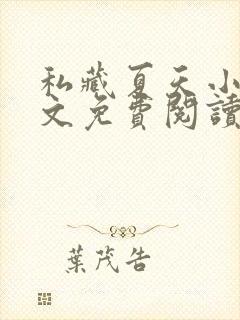 私藏夏天小
文免費閱讀
葉茂告